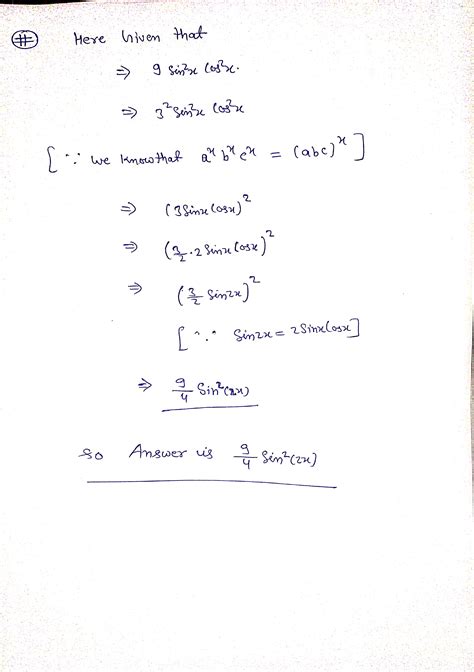 # Here Given that
⇒ 9 sin²x cos²x.
⇒ 3² sin²x cos²x
[ ∵ we know that aˣ bˣ cˣ = (abc)ˣ ]
⇒ (3 sinx cosx)²
⇒ (3/2 · 2 sinx cosx)²
⇒ (3/2 sin2x)²
[ ∵ sin2x = 2 sinx cosx ]
⇒ 9/4 sin²(2x)
so Answer is 9/4 sin²(2x)